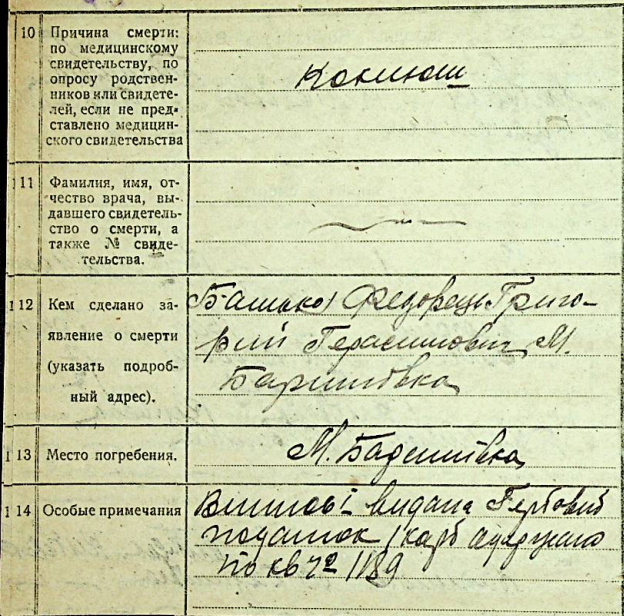 10 Причина смерти:
по медицинскому
свидетельству, по
опросу родствен-
ников или свидете-
лей, если не пред-
ставлено медицин-
ского свидетельства
Коклюш
11 Фамилия, имя, от-
чество врача, вы-
давшего свидетель-
ство о смерти, а
также № свиде-
тельства.
12 Кем сделано за-
явление о смерти
(указать подроб-
ный адрес).
Батько Федорець Григо-
рий Герасимович М.
Баришівка
13 Место погребения.
М. Баришівка
14 Особые примечания
видана Гербовий
податок
по кв 189